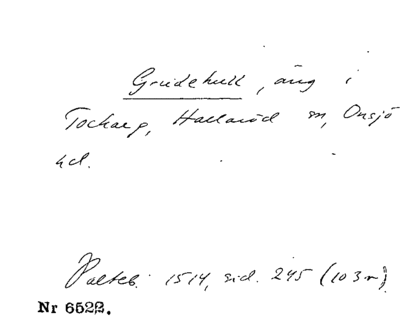 Grudehull, äng i
Tockarp, Hallaröd sn, Onsjö
hd.
Palteb. 1514, sid. 245 (103r)
Nr 6522.